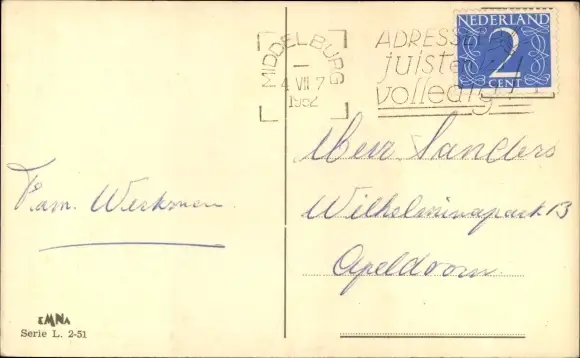 MIDDELBURG
4 VII 7
1952
ADRESSEER
juist en
volledig!
NEDERLAND
2
CENT
Fam. Werkman.
Sanders
Wilhelminapark 13
Apeldoorn
EMNA
Serie L. 2-51